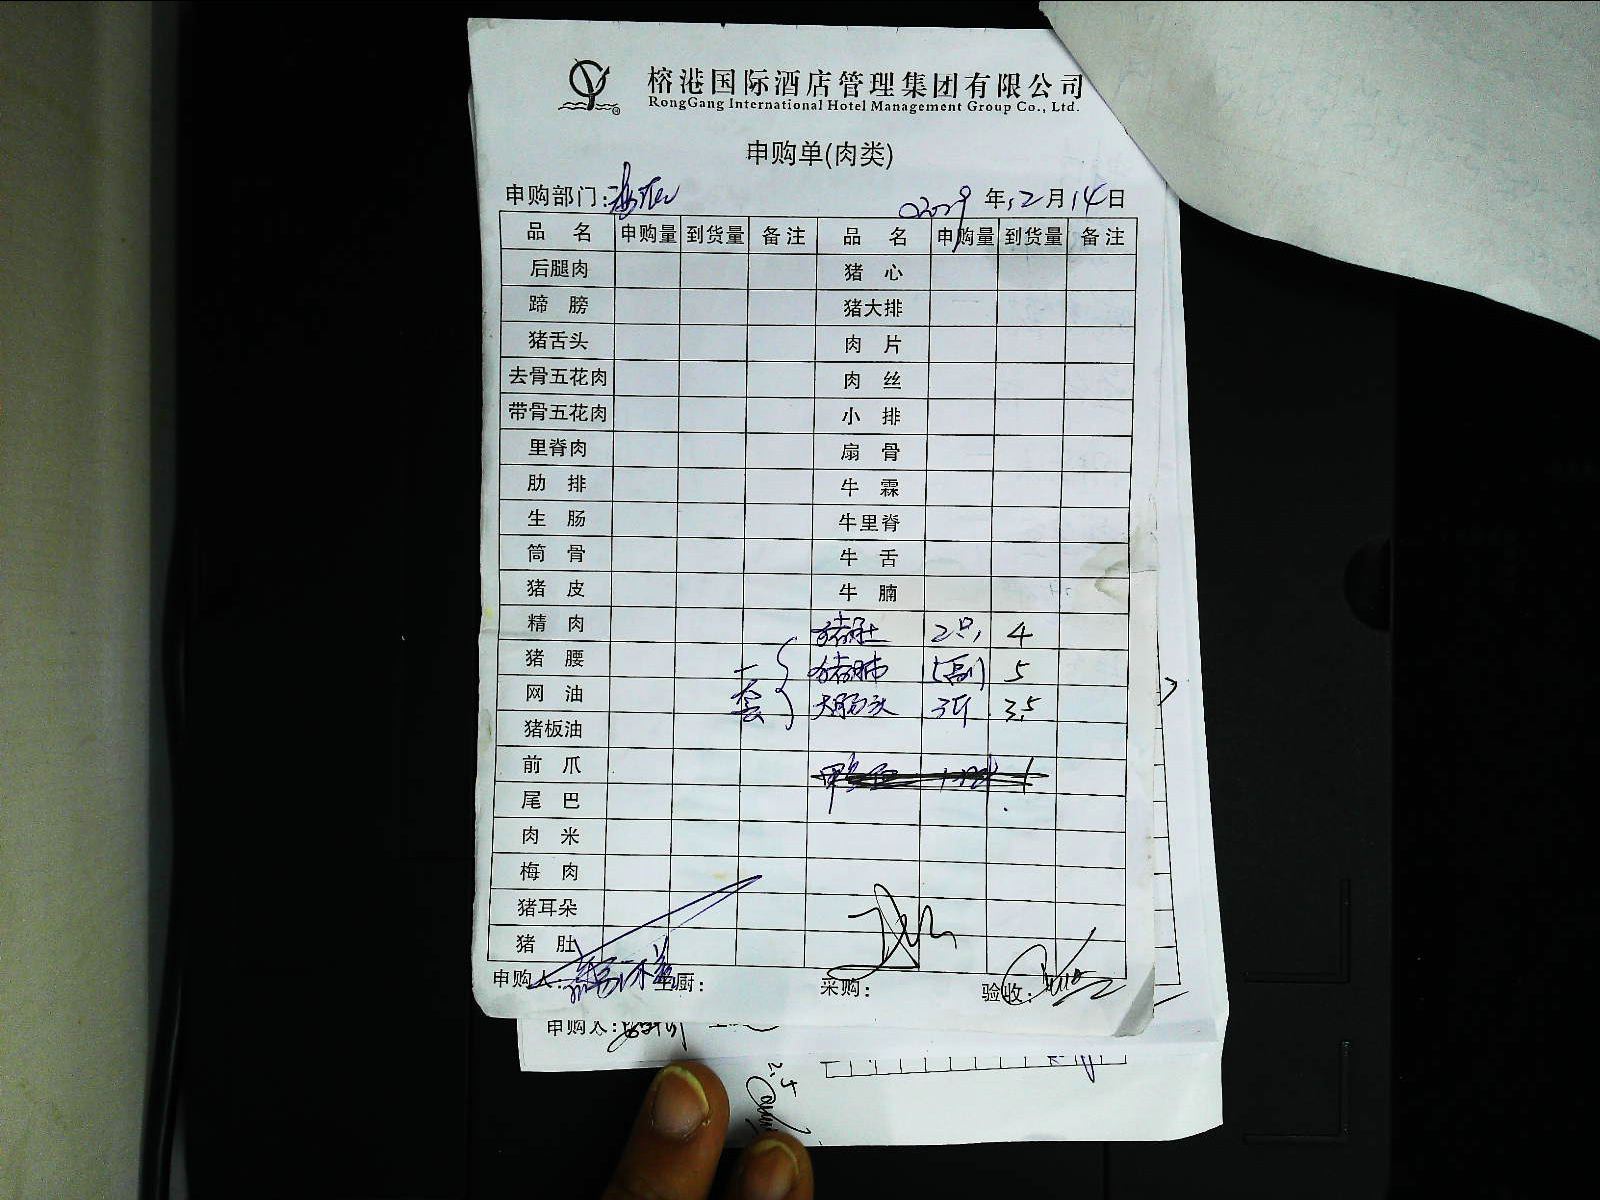 榕港国际酒店管理集团有限公司
RongGang International Hotel Management Group Co., Ltd.
申购单(肉类)
申购部门: 年12月14日
品 名 申购量 到货量 备注 品 名 申购量 到货量 备注
后腿肉 猪 心
蹄 膀 猪大排
猪舌头 肉 片
去骨五花肉 肉 丝
带骨五花肉 小 排
里脊肉 扇 骨
肋 排 牛 霖
生 肠 牛里脊
筒 骨 牛 舌
猪 皮 牛 腩
精 肉 猪肚 2只 4
猪 腰 猪肺 5
网 油 一套 大肠头 3斤 3.5
猪板油
前 爪
尾 巴
肉 米
梅 肉
猪耳朵
猪 肚
申购人: 主厨: 采购: 验收:
申购人:
2.5